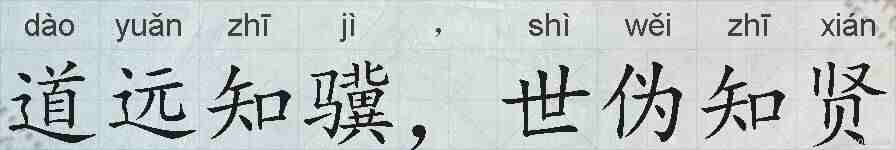 dào yuǎn zhī jì ， shì wěi zhī xián
道远知骥，世伪知贤